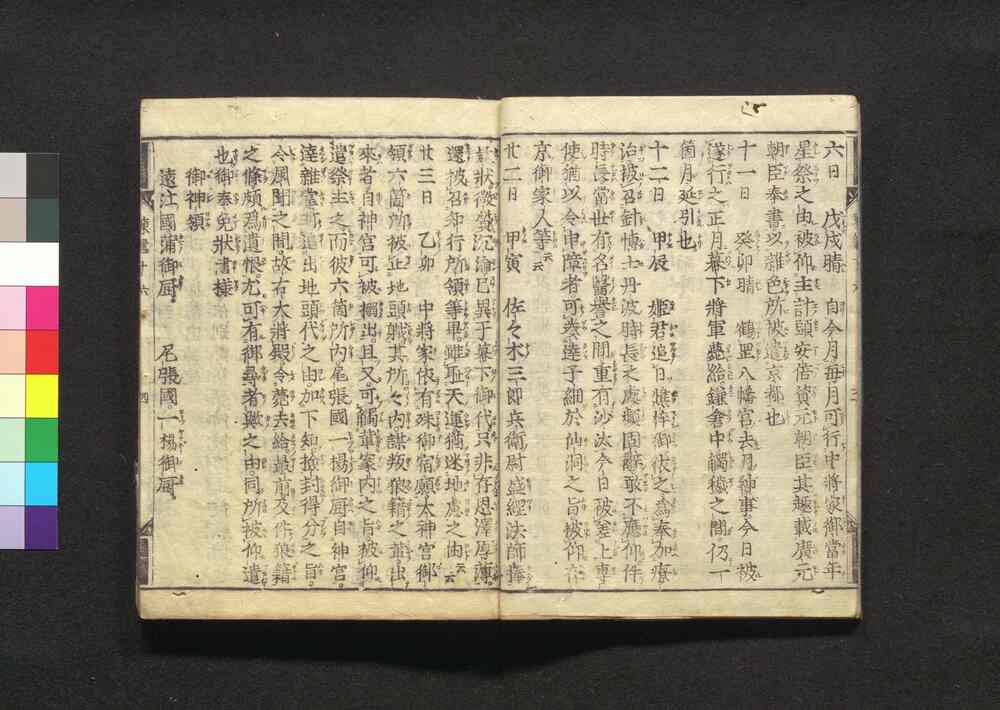 六日 戊戌晴 自今月毎月可行中將家御當年
星祭之由被仰主計頭安倍資元朝臣其趣載廣元
朝臣奉書以雜色所被遣京都也
十一日 癸卯晴 鶴岡八幡宮去月神事今日被
遂行之正月幕下將軍薨給鎌倉中觸穢之間仍一
箇月延引也
十二日 甲辰 姬君追日憔悴御依之爲奉加療
治被召針博士丹波時長之處頻固辭敢不應仰件
時長當世有名醫譽之間重有沙汰今日被差上專
使猶以令申障者可奏達子細於仙洞之旨被仰在
京御家人等云云
廿二日 甲寅 佐々木三郎兵衛尉盛經法師捧
狀微望沉淪已異于幕下御代只非存恩澤厚薄
還被召却行所領等畢雖耻天運猶迷地處之由云云
廿三日 乙卯 中將家依有殊御宿願太神宮御
領六箇所被止地頭職其所々內謀叛狼藉之輩出
來者自神宮可被搦出且又可觸當家內之旨被仰
遣祭主之而彼六箇所內尾張國一楊御厨自神宮
達雜掌追出地頭代之由加下知撿封得分之旨
令風聞之間故右大將殿令薨去給境前及件狼藉
之條頗爲遺恨尤可有御尋者歟之由同所被仰遣
也御奉免狀書樣
御神領
遠江國蒲御厨 尼張國一楊御厨